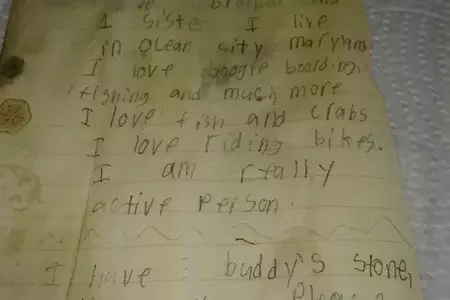 brother
1 Sister I live
in Ocean city maryland
I love boogie boarding,
fishing and much more
I love fish and crabs
I love riding bikes.
I am really
active person.
I have buddy's stone,